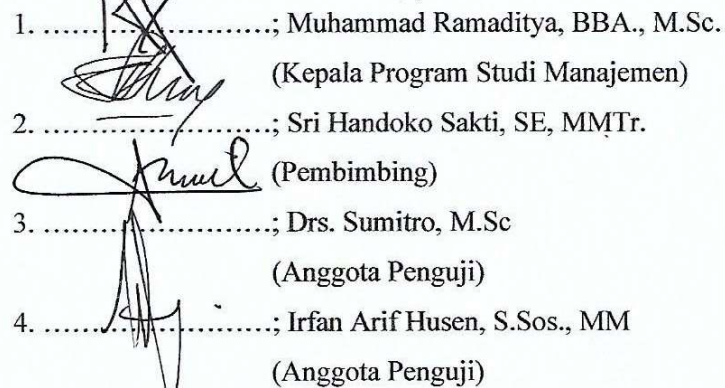 1. ........................; Muhammad Ramaditya, BBA., M.Sc.
(Kepala Program Studi Manajemen)
2. ........................; Sri Handoko Sakti, SE, MMTr.
(Pembimbing)
3. ........................; Drs. Sumitro, M.Sc
(Anggota Penguji)
4. ........................; Irfan Arif Husen, S.Sos., MM
(Anggota Penguji)